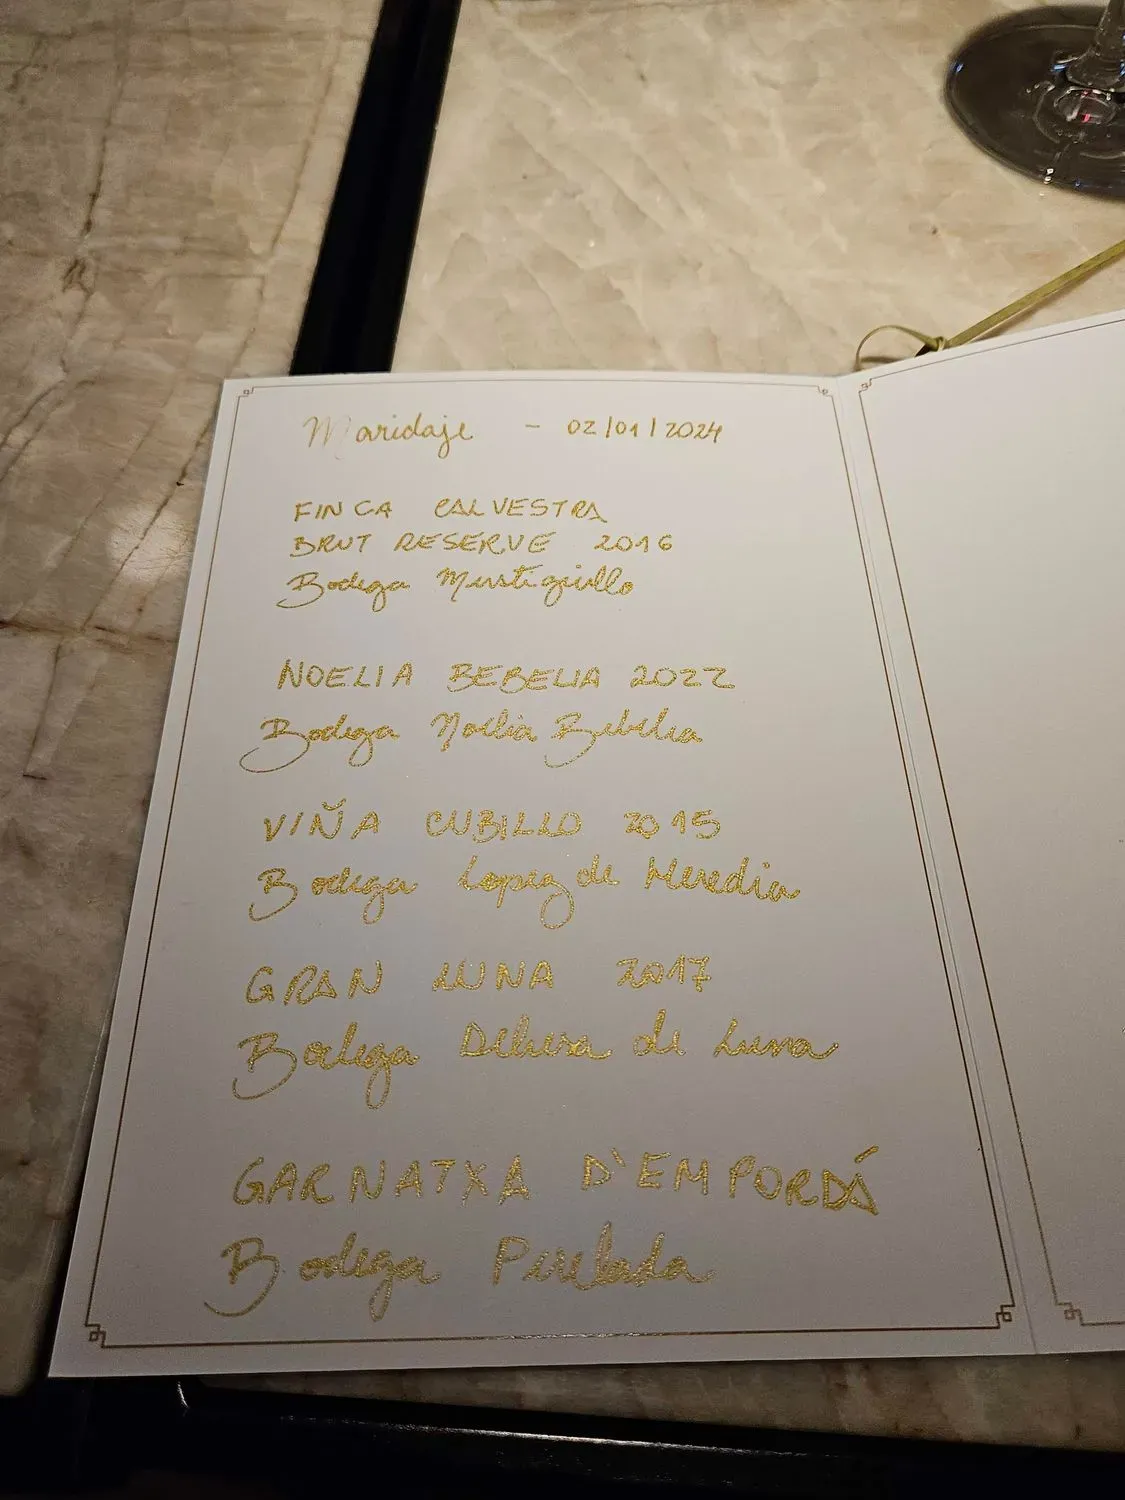 Maridaje - 02/01/2024
FINCA CALVESTRA
BRUT RESERVE 2016
Bodega Mustiguillo
NOELIA BEBELIA 2022
Bodega Noelia Bebelia
VIÑA CUBILLO 2015
Bodega Lopez de Heredia
GRAN LUNA 2017
Bodega Dehesa de Luna
GARNATXA D'EMPORDÁ
Bodega Perelada